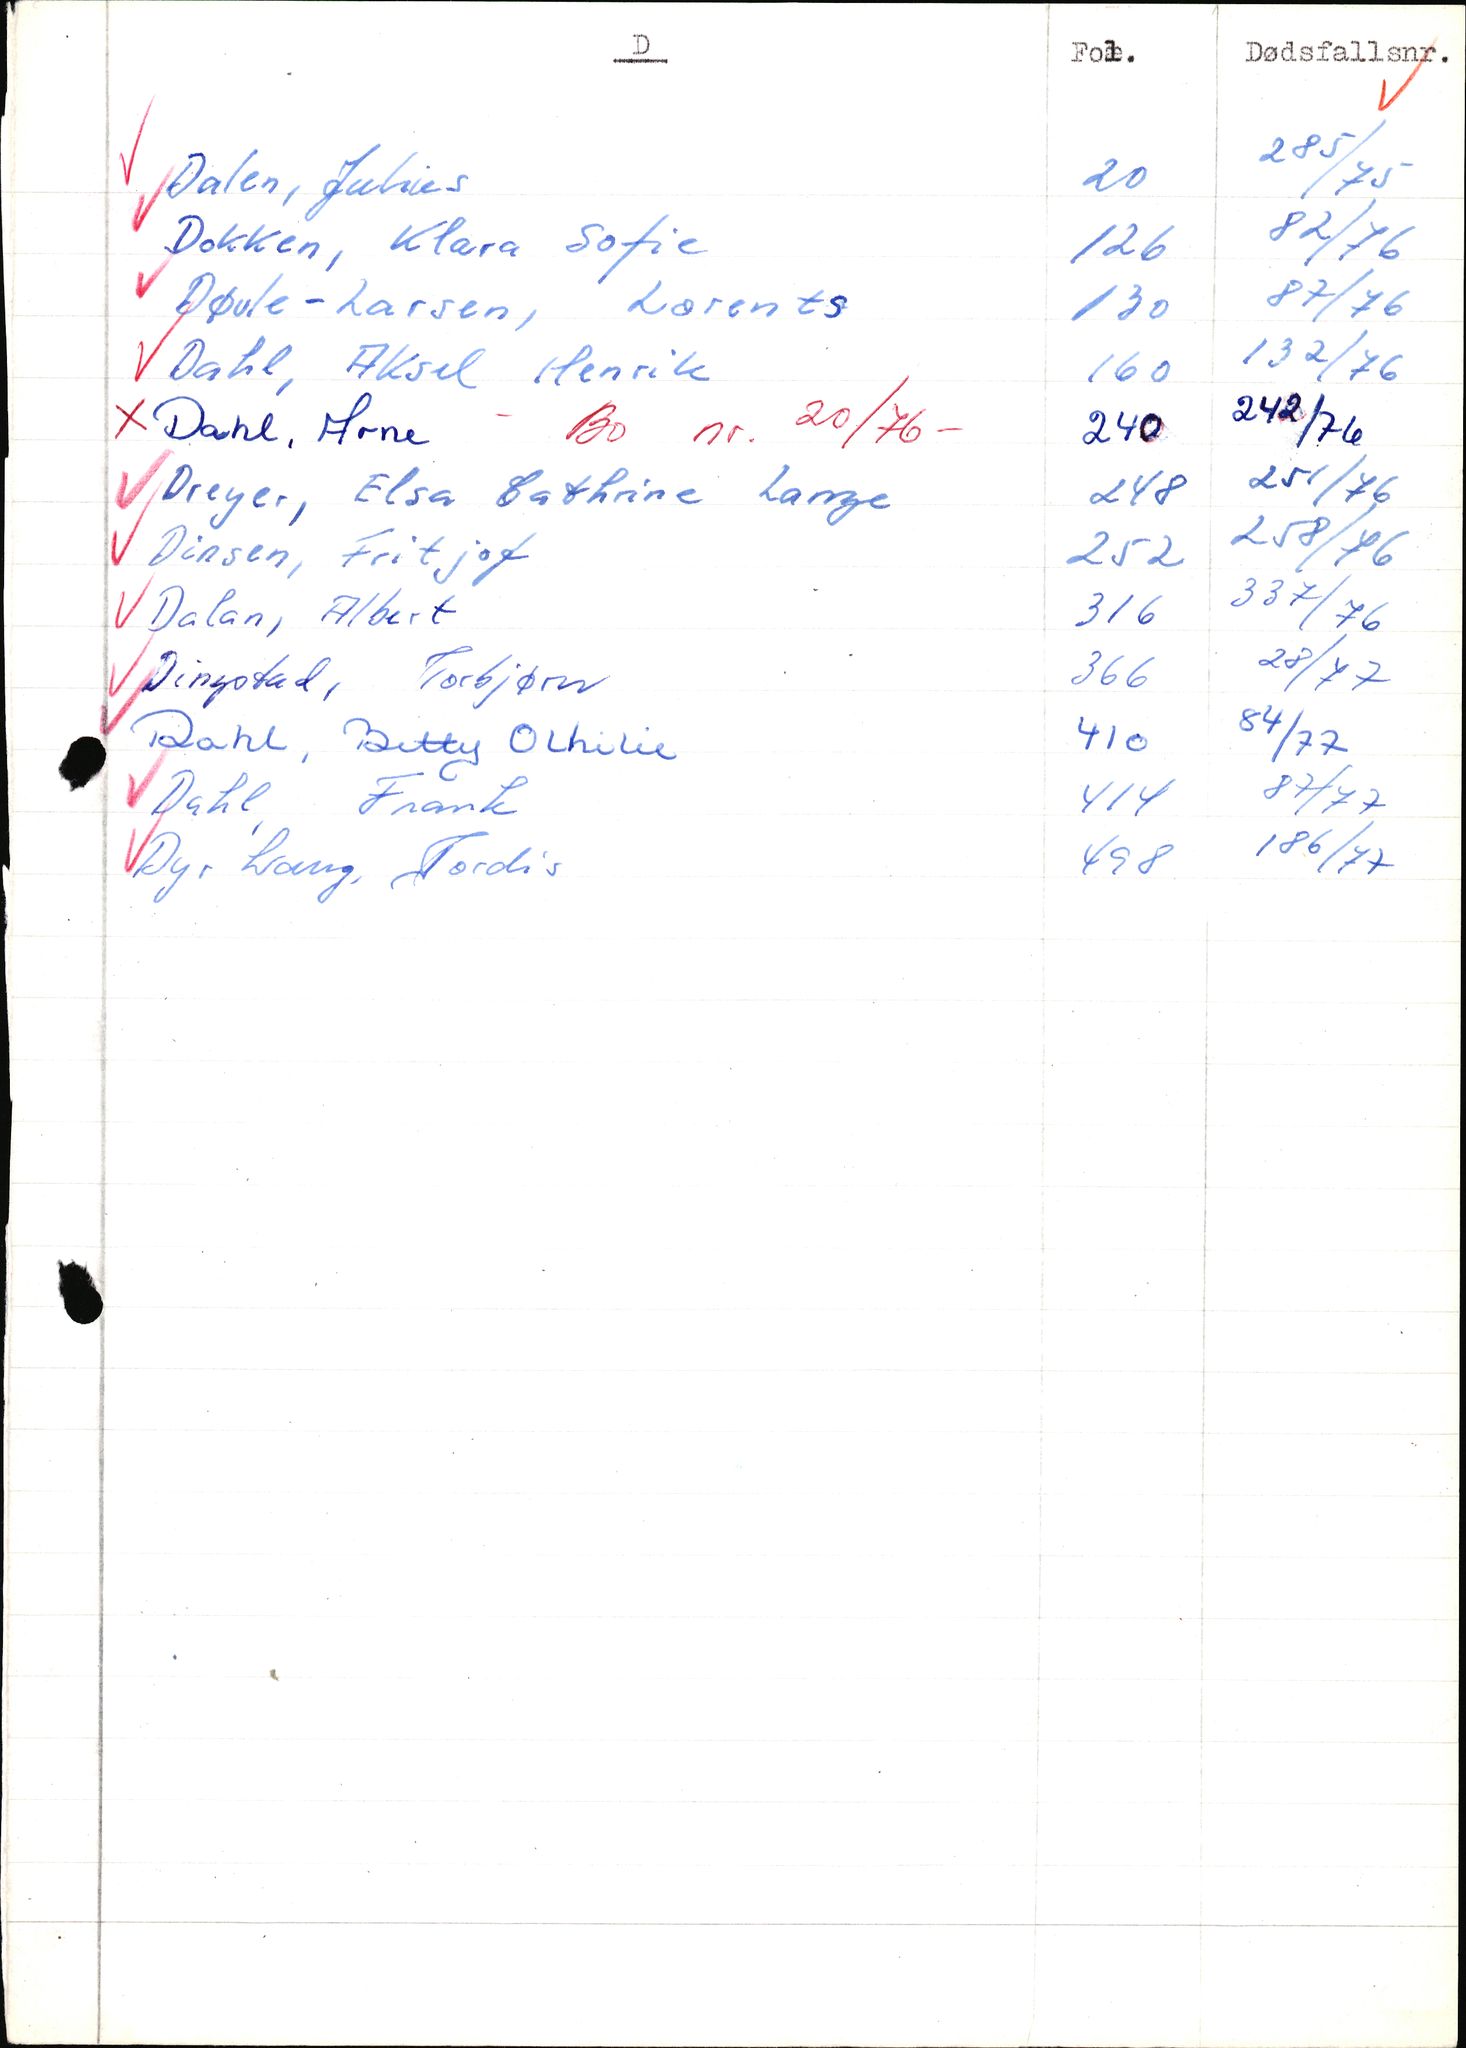 D Fol. Dødsfallsnr.
Dalen, Julius 20 285/75
Dokken, Klara Sofie 126 82/76
Døvle-Larsen, Lorents 130 87/76
Dahl, Aksel Henrik 160 132/76
Dahl, Arne - Bo nr. 20/76 - 240 242/76
Dreyer, Elsa Cathrine Lange 248 251/76
Dinsen, Fritjof 252 258/76
Dalan, Albert 316 337/76
Dingstad, Torbjørn 366 28/77
Dahl, Betty Othilie 410 84/77
Dahl, Frank 414 87/77
Dyr Tordis 498 186/77